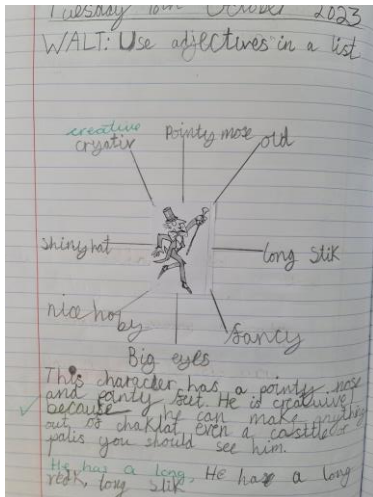 Tuesday 10th October 2023
WALT: Use adjectives in a list
creative
cryativ
Pointy mose
old
shiny hat
long stik
nice ho
by
fancy
Big eyes
This character has a pointy nose
and pointy sut. He is creatuive
because he can make anything
out of chaklat even a casttle
palis you should see him.
He has a long, He has a long
long stik